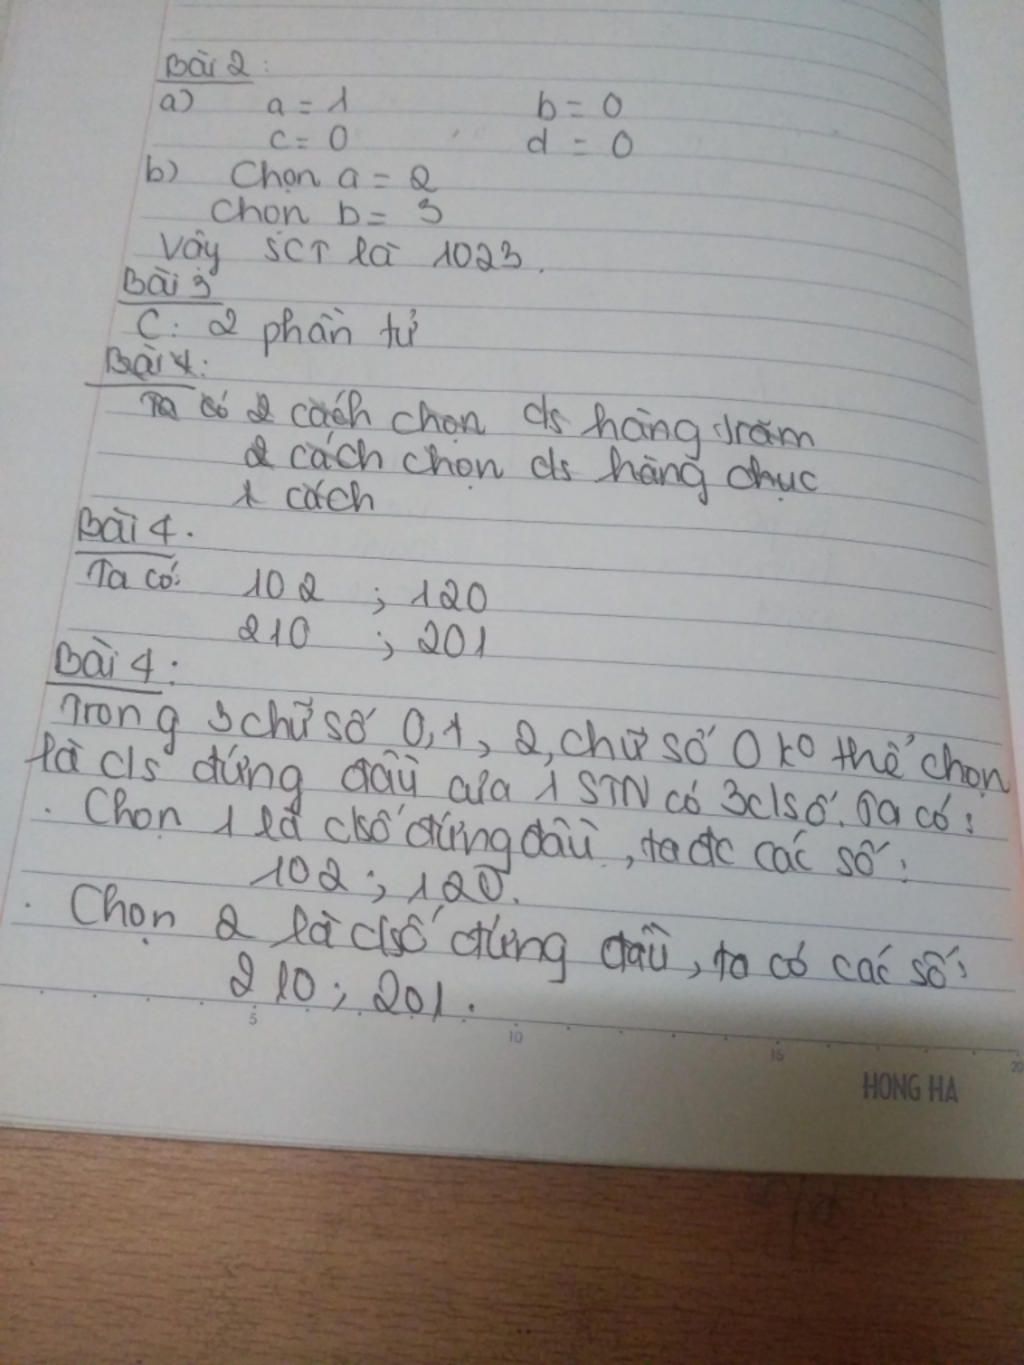 Bài 2:
a) a = 1 b = 0
c = 0 d = 0
b) Chọn a = 2
Chọn b = 3
Vậy SCT là 1023.
Bài 3
C: 2 phần tử
Bài 4:
Ta có 2 cách chọn c/s hàng trăm
2 cách chọn c/s hàng chục
1 cách
Bài 4.
Ta có: 102 ; 120
210 ; 201
Bài 4:
Trong 3 chữ số 0, 1, 2, chữ số 0 ko thể chọn
là c/s đứng đầu của 1 STN có 3 c/số. Ta có:
. Chọn 1 là c/số đứng đầu, ta đc các số:
102 ; 120.
. Chọn 2 là c/số đứng đầu, ta có các số:
210 ; 201.
5 10 15 20
HONG HA